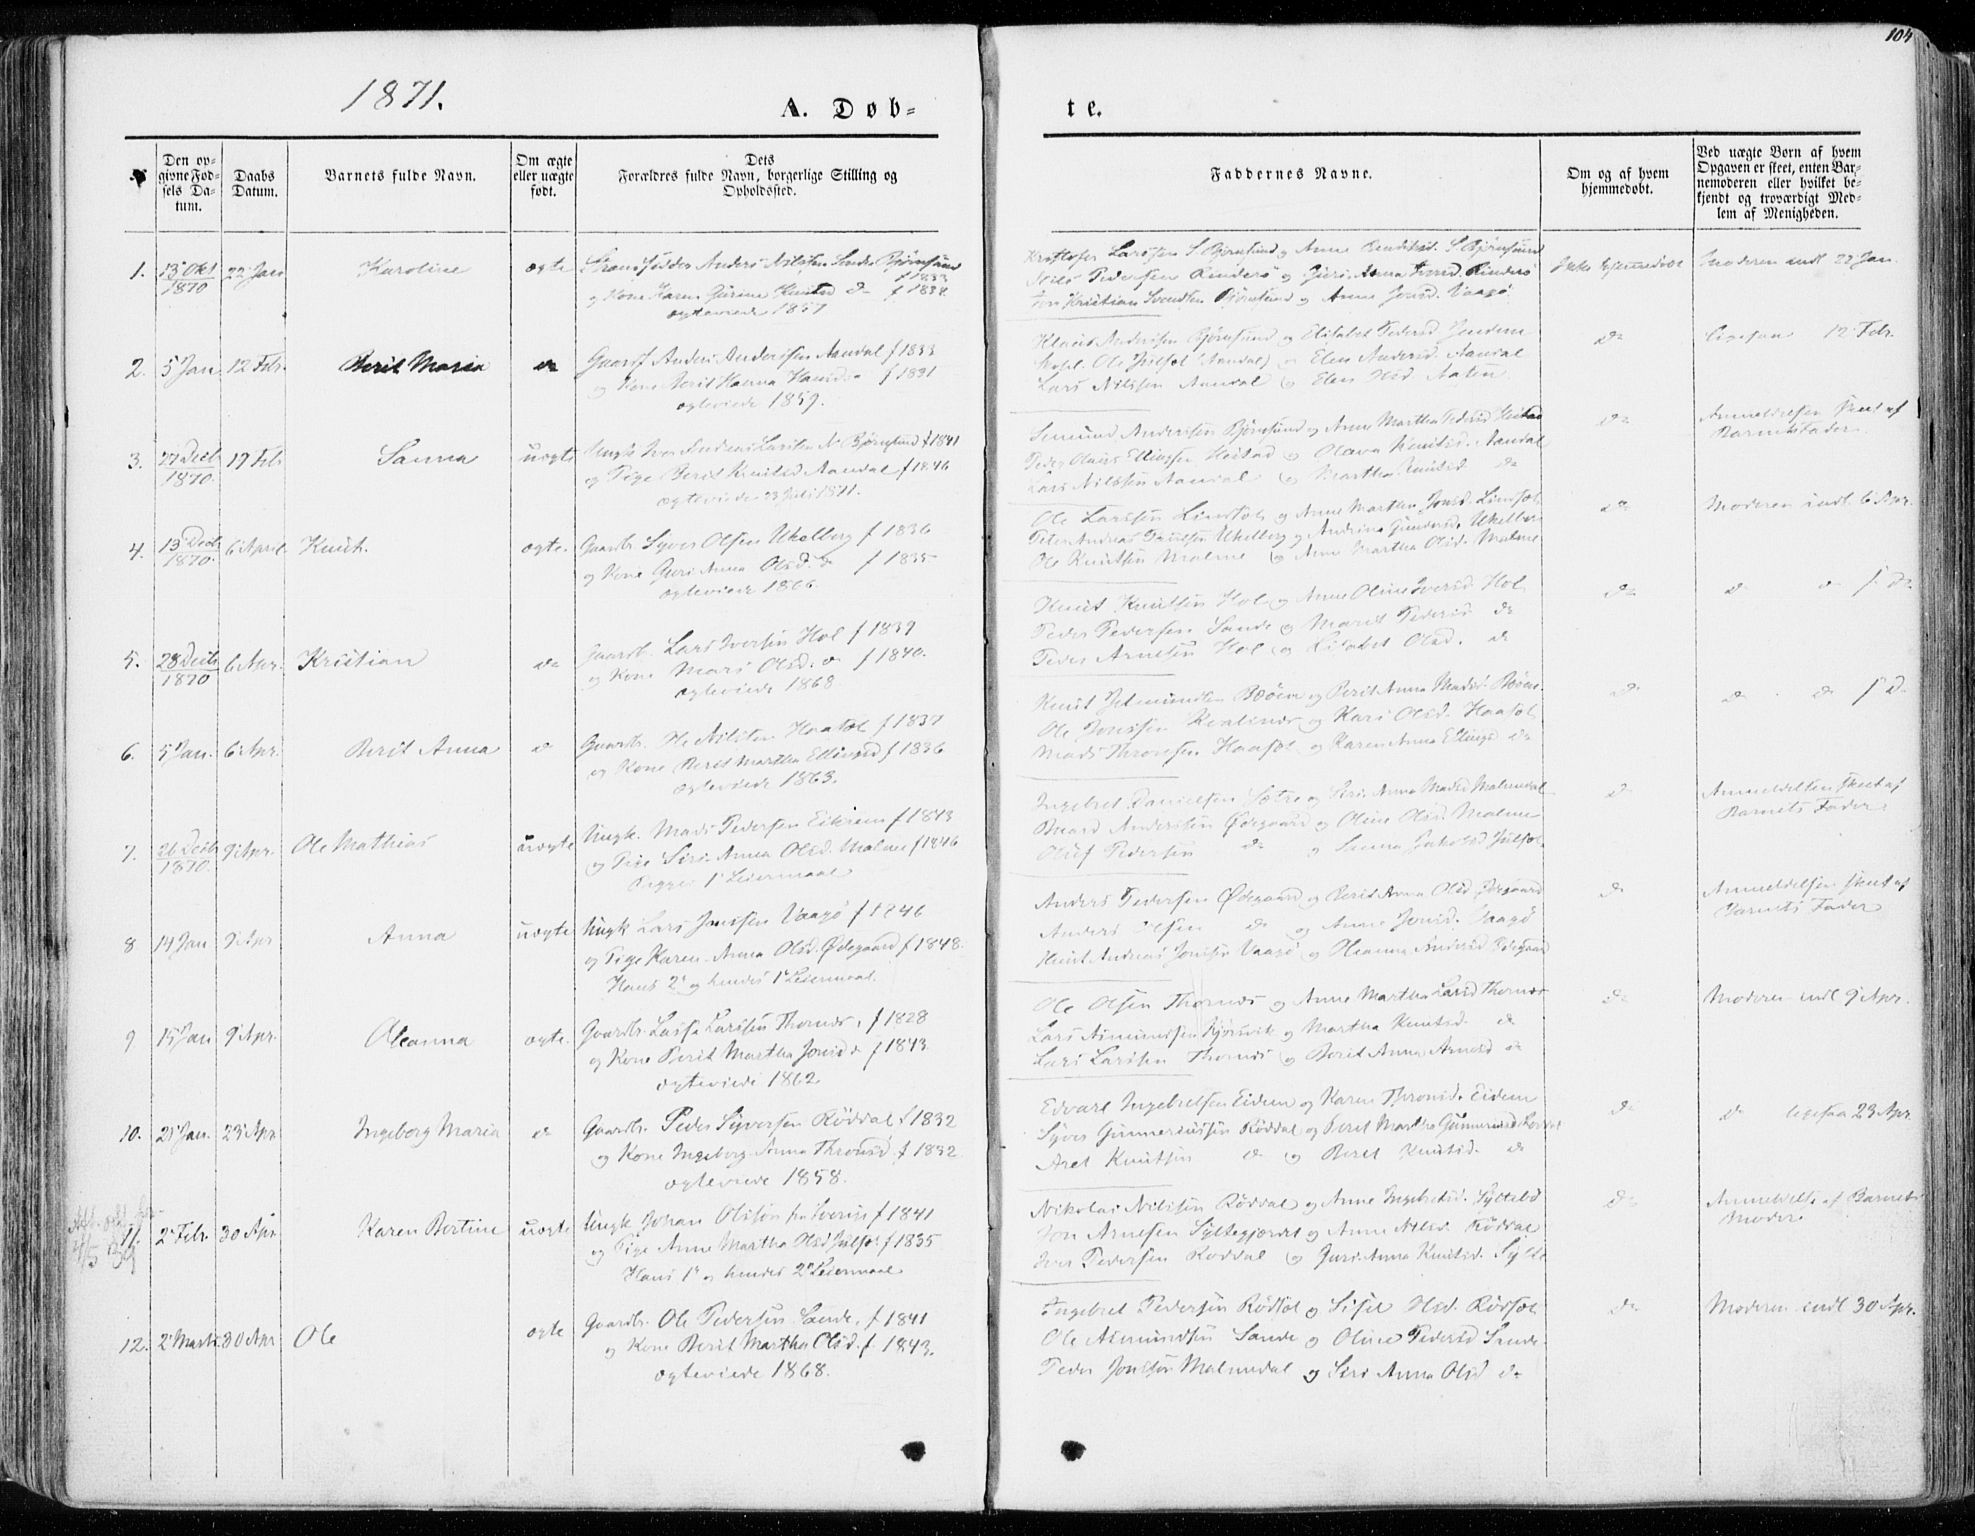 104
1871.
A. Døb=
te.
Den op=
givne Fød=
sels Da=
tum.
Daabs
Datum.
Barnets fulde Navn.
Om ægte
eller uægte
født.
Dets
Forældres fulde Navn, borgerlige Stilling og
Opholdssted.
Faddernes Navne.
Om og af hvem
hjemmedøbt.
Ved uægte Børn af hvem
Opgaven er skeet, enten Bar=
nemoderen eller hvilket be=
kjendt og troværdigt Med=
lem af Menigheden.
1. 13 Okt 1870 22 Jan Karoline ægte
Strandsidder Anders Nilsen Søndre Bjørnsund f 1833
og Kone Karen Gurine Knutsd do f 1838
ægteviede 1857
Kristofer Larssen S. Bjørnsund og Anne S. Bjørnsund
Nils Pedersen Rindarø og Guri Anna Rindarø
Jon Kristian Bjørnsund og Anne Jonsd. Vaagø
Ikke hjemmedøbt
Moderen indl 22 Jan.
2. 5 Jan 12 Febr. Berit Maria do
Gaardbr Anders Andersen Aandal f 1833
og Kone Berit f 1831
ægteviede 1859.
Klaus Andersen Bjørnsund og Elisabet Pedersd
Ole Julsøt (Aandal) og Elen Andersd. Aandal
Lars Nilssen Aandal og Elen
do
Ligesaa 12 Febr.
3. 27 Decb 1870 19 Feb Sanna uægte
Ungk. Iver Andreas Larsen N. Bjørnsund f 1841
og Pige Berit Knutsd Aandal f 1846
ægteviede 23 Juli 1871.
Andersen Bjørnsund og Anne Martha Pedersd Heistad
Peder Olaus Ellingsen Heistad og Olava Knutsd. Aandal
Lars Nilssen Aandal og Martha Knutsd do
do
Anmeldelsen skeet af
Barnets Fader
4. 13 Decb 1870. 6 April Knut. ægte.
Gaardbr. Syver Olsen Ukelberg f 1836
og Kone Guri Anna Olsd. do f 1835
ægteviede 1866.
Ole Larssen Lindset og Anne Martha Jonsd. Lindset
Peter Andreas Ukelberg og Andrina Ukelberg
Ole Knutsen Malme og Anne Martha Olsd. Malme
do
Moderen indl 6 Apr.
5. 28 Decb 1870 6 Apr. Kristian do
Gaardbr. Lars Iversen Hol f 1839
og Kone Mari Olsd. do f 1840.
ægteviede 1868
Knut Knutsen Hol og Anne Oline Iversd. Hol
Peder Pedersen Sande og Marit Pedersd do
Peder Arnesen Hol og Lisabet Olsd. do
do
do do f. d.
6. 5 Jan. 6 Apr. Berit Anna do
Gaardbr. Ole Nilsen Haaset f 1837
og Kone Berit Martha Ellingsd f 1836
ægteviede 1863.
Knut Bøen og Berit Anna Madsd. Bøen
Ole Jonssen og Kari Olsd. Haaset
Mads Thronsen Haaset og Karen Anna Ellingsd do
do
do do f d.
7. 26 Decb 1870. 9 Apr. Ole Mathias uægte
Ungk. Mads Pedersen Eikrem f 1843
og Pige Siri Anna Olsd. Malme f 1846
Begges 1' Leiermaal
Ingebret Danielsen Sætre og Siri Anna Madsd Malmedal
Baard Anderssen Ødegaard og Oline Olsd Malme
Oluf Pedersen do og Sanna Jakobsd Julset
do
Anmeldelsen skeet af
Barnets Fader
8 14 Jan 9 Apr Anna uægte
Ungk Lars Jonssen Vaagø f 1846
og Pige Karen Anna Olsd. Ødegaard f 1848.
Hans 2' og hendes 1' Leiermaal.
Anders Pedersen Ødegaard og Berit Anna Olsd Ødegaard
Anders Olsen do og Anne Jonsd. Vaagø
Knut Andreas Jonssen Vaagø og Oleanna Andersd Ødegaard
do
Anmeldelsen skeet af
Barnets Fader
9 15 Jan 9 Apr. Oleanna ægte.
Gaardbr. Lasse Larssen Thornes, f 1828
og Kone Berit Martha Jonsd do f 1843.
ægteviede 1862
Ole Olsen Thornes og Anne Martha Larsd Thornes
Lars Asmundsen og Martha Knutsd. do
Lars Larssen Thornes og Berit Anna Arnesd do
do
Moderen indl 9 Apr.
10. 21 Jan. 23 Apr Ingeborg Maria do
Gaardbr. Peder Syversen Røddal f 1832
og Kone Ingeborg Anna Thronsd. f 1832
ægteviede 1858.
Edvart Ingebretsen Eidem og Karen Thronsd. Eidem
Syver Gunnerussen Røddal og Berit Martha Gunnerusd Røddal
Aret Knutsen do og Beret Knutsd. do
do
do ligesaa 23 Apr.
4/5 39
11. 2 Febr. 30 Apr Karen Bertine uægte
Ungk. Johan Olsson fra Sverige f 1841
og Pige Anne Martha Olsd Julset f 1835
Hans 1' og hendes 2' Leiermaal
Nikolai Nilssen Røddal og Anne Ingebretsd.
Jon Arnesen Syltegjerdet og Anne Nilsd. Røddal
Iver Pedersen Røddal og Guri Anna Knutsd. Sylte
do
Anmeldelse af Barnets
Moder.
12. 2 Marts 30 Apr Ole ægte
Gaardbr. Ole Pedersen Sande, f 1841
og Kone Berit Martha Olsd. f. 1843.
ægteviede 1868.
Ingebret Pedersen Rødset og Sisel Olsd. Rødset
Ole Asmundsen Sande og Oline Pedersd Sande
Peder Jonsson Malmedal og Siri Anna Olsd do
do
Moderen indl 30 Apr.